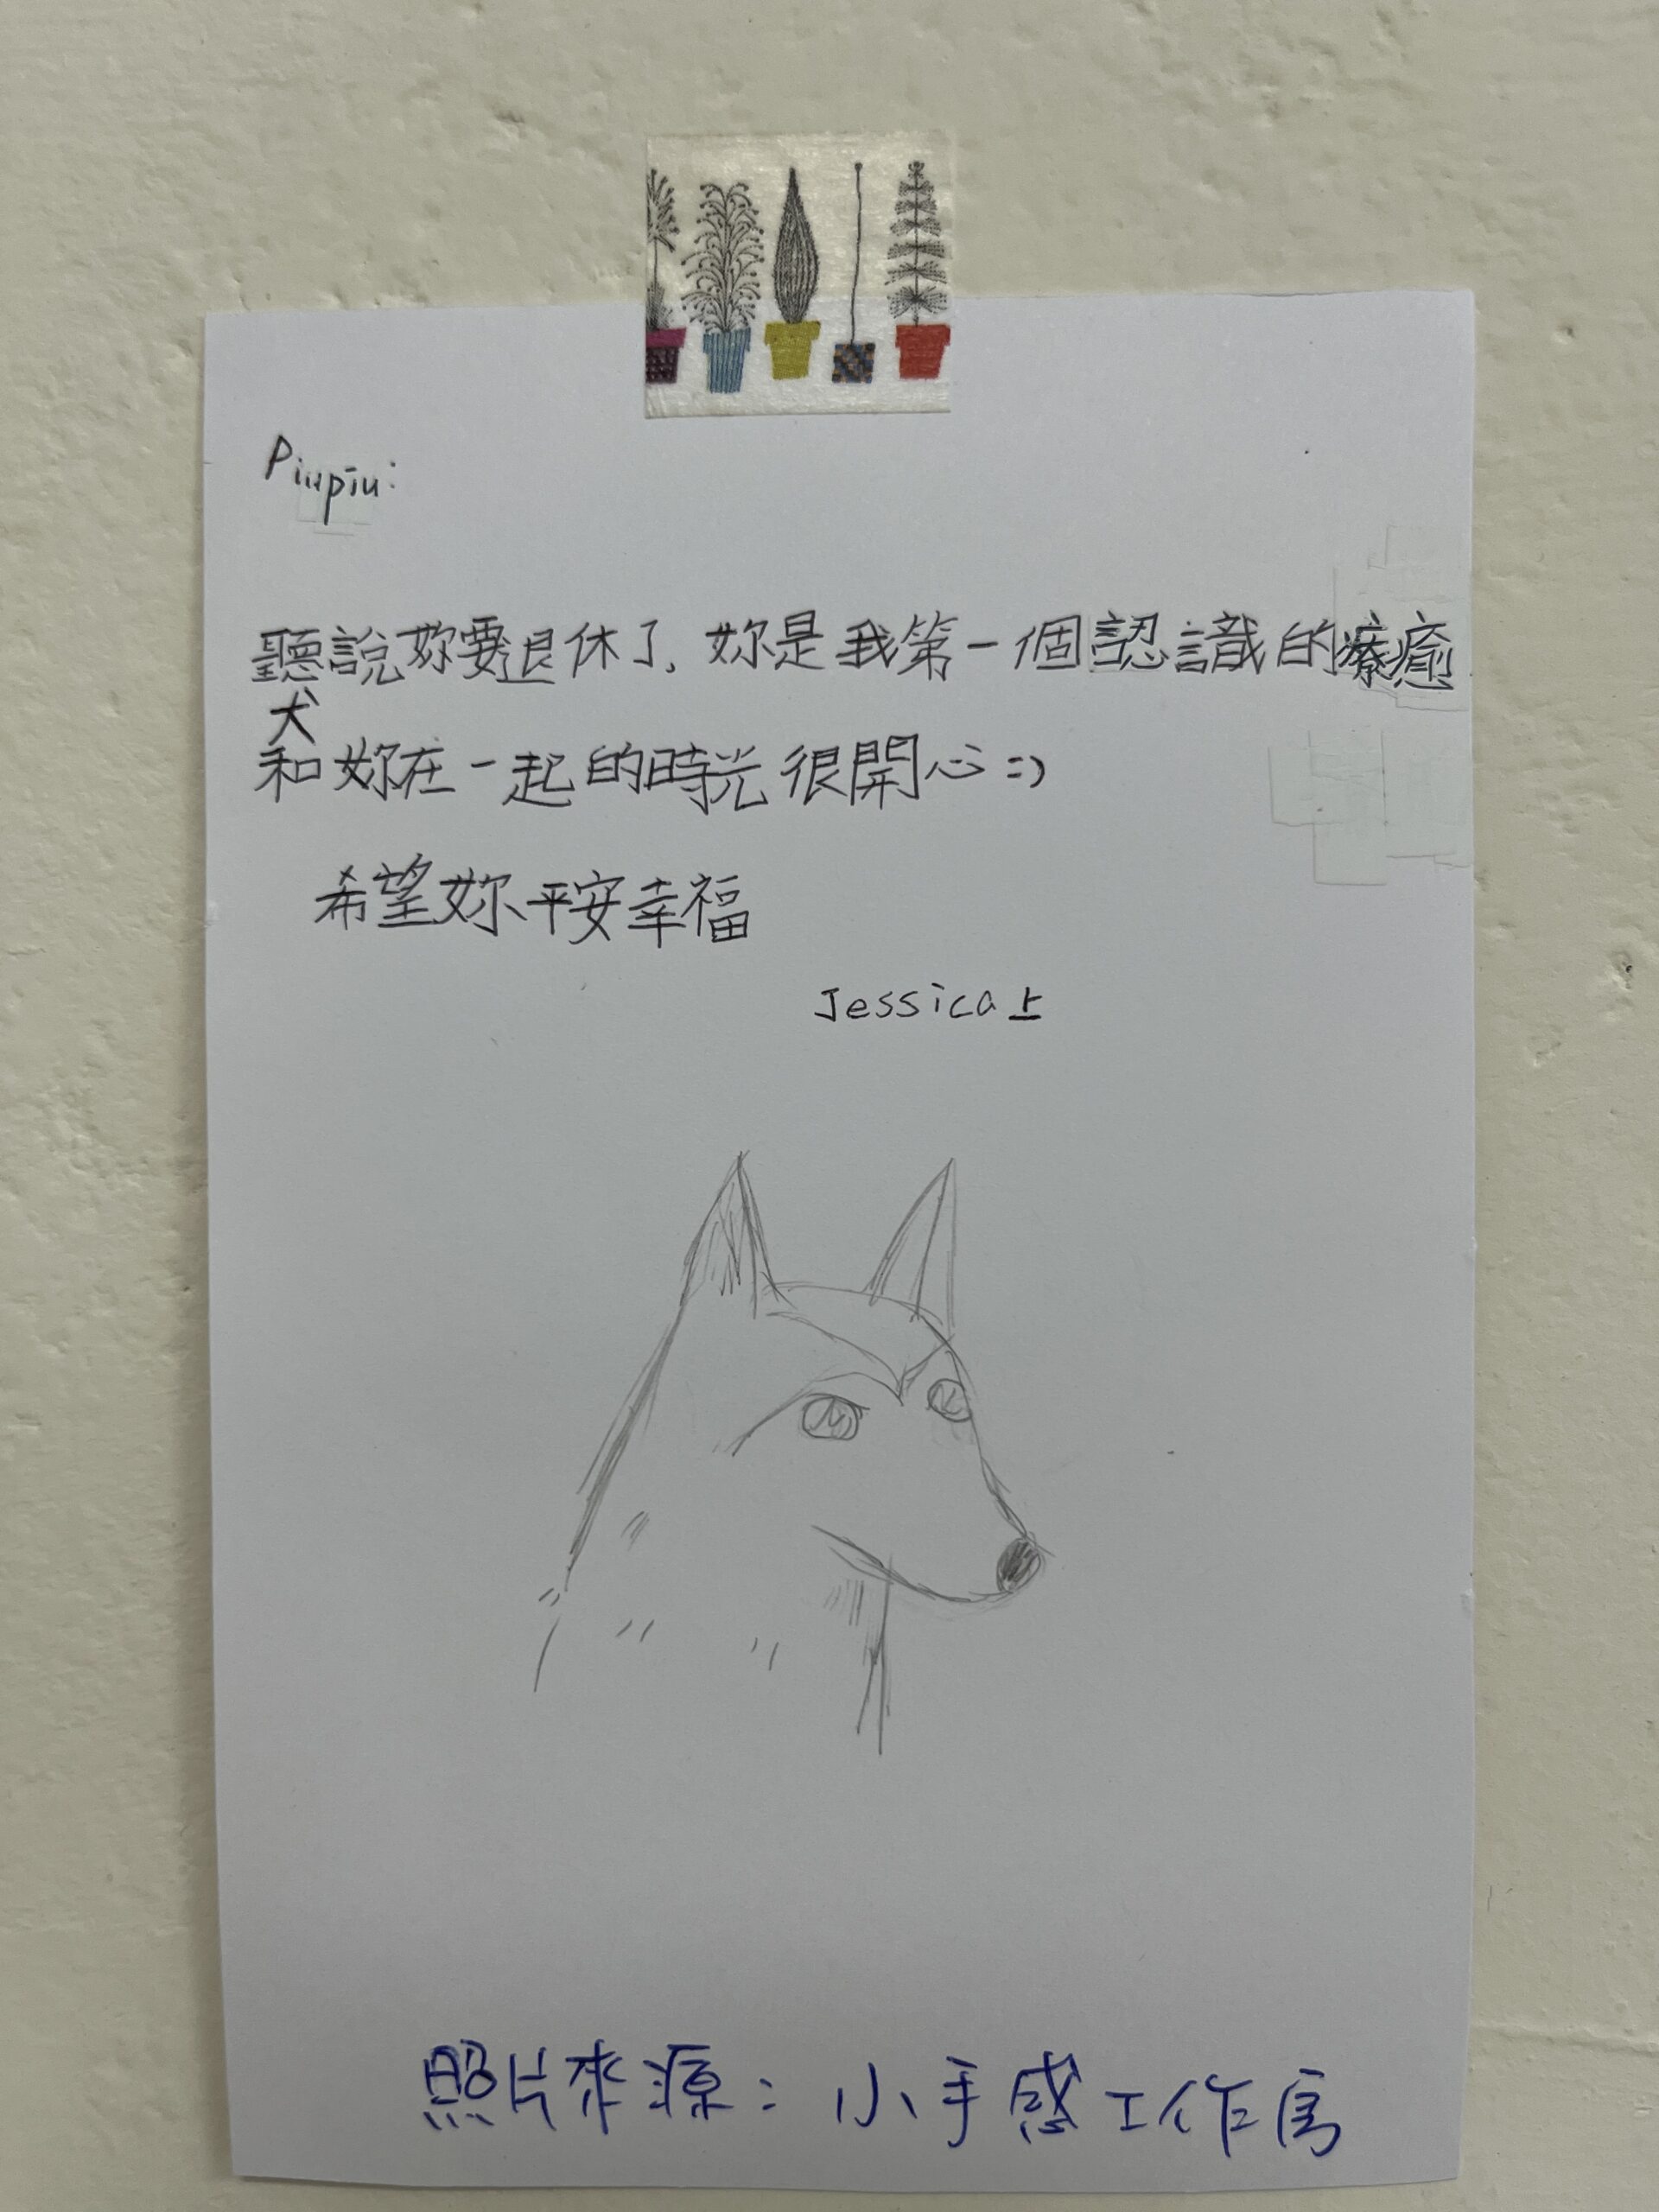 Piupiu:
聽說妳要退休了, 妳是我第一個認識的療癒
犬
和妳在一起的時光很開心 :)
希望妳平安幸福
Jessica上
照片來源: 小手感工作室